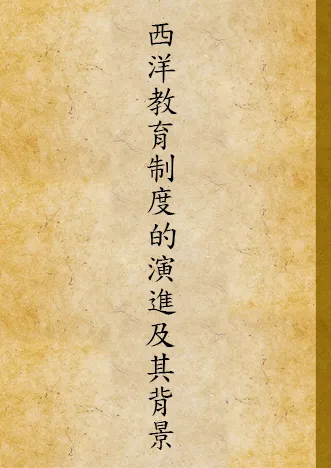 西洋教育制度的演進及其背景